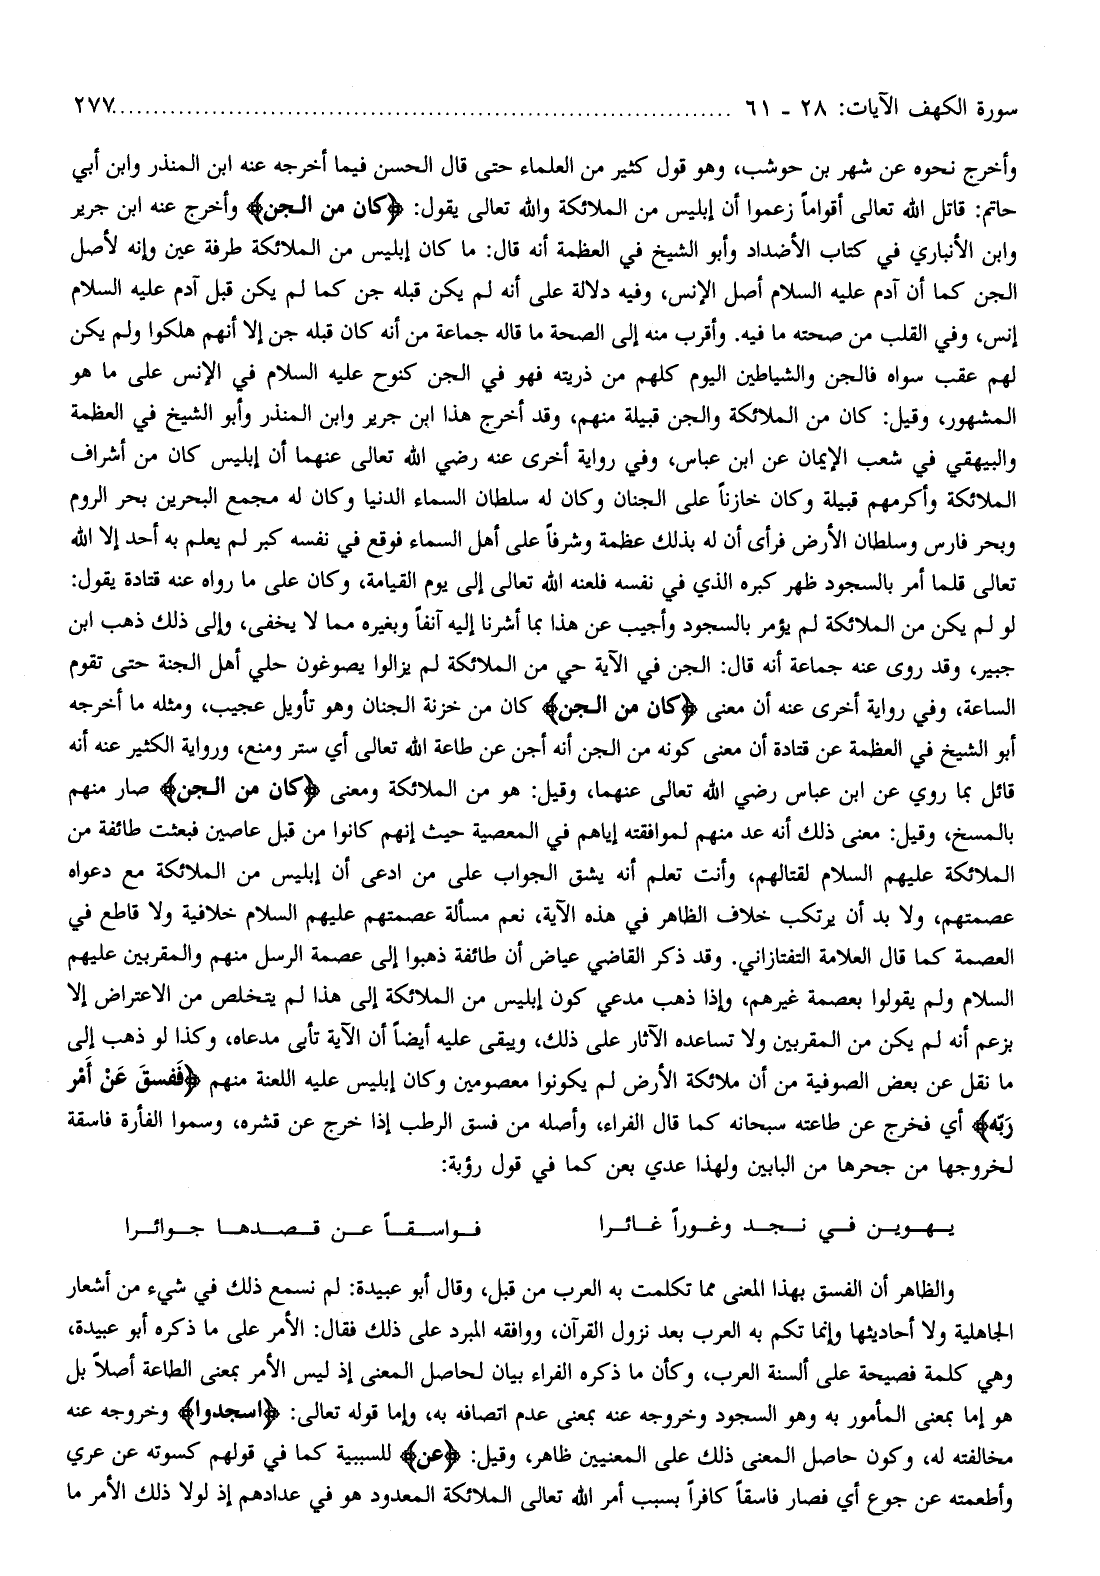 سورة الكهف الآيات: ٢٨ - ٦١ ........................................................................ ٢٧٧
وأخرج نحوه عن شهر بن حوشب، وهو قول كثير من العلماء حتى قال الحسن فيما أخرجه عنه ابن المنذر وابن أبي
حاتم: قاتل الله تعالى أقواماً زعموا أن إبليس من الملائكة والله تعالى يقول: ﴿كان من الجن﴾ وأخرج عنه ابن جرير
وابن الأنباري في كتاب الأضداد وأبو الشيخ في العظمة أنه قال: ما كان إبليس من الملائكة طرفة عين وإنه لأصل
الجن كما أن آدم عليه السلام أصل الإنس، وفيه دلالة على أنه لم يكن قبله جن كما لم يكن قبل آدم عليه السلام
إنس، وفي القلب من صحته ما فيه. وأقرب منه إلى الصحة ما قاله جماعة من أنه كان قبله جن إلا أنهم هلكوا ولم يكن
لهم عقب سواه فالجن والشياطين اليوم كلهم من ذريته فهو في الجن كنوح عليه السلام في الإنس على ما هو
المشهور، وقيل: كان من الملائكة والجن قبيلة منهم، وقد أخرج هذا ابن جرير وابن المنذر وأبو الشيخ في العظمة
والبيهقي في شعب الإيمان عن ابن عباس، وفي رواية أخرى عنه رضي الله تعالى عنهما أن إبليس كان من أشراف
الملائكة وأكرمهم قبيلة وكان خازناً على الجنان وكان له سلطان السماء الدنيا وكان له مجمع البحرين بحر الروم
وبحر فارس وسلطان الأرض فرأى أن له بذلك عظمة وشرفاً على أهل السماء فوقع في نفسه كبر لم يعلم به أحد إلا الله
تعالى قلما أمر بالسجود ظهر كبره الذي في نفسه فلعنه الله تعالى إلى يوم القيامة، وكان على ما رواه عنه قتادة يقول:
لو لم يكن من الملائكة لم يؤمر بالسجود وأجيب عن هذا بما أشرنا إليه آنفاً وبغيره مما لا يخفى، وإلى ذلك ذهب ابن
جبير، وقد روى عنه جماعة أنه قال: الجن في الآية حي من الملائكة لم يزالوا يصوغون حلي أهل الجنة حتى تقوم
الساعة، وفي رواية أخرى عنه أن معنى ﴿كان من الجن﴾ كان من خزنة الجنان وهو تأويل عجيب، ومثله ما أخرجه
أبو الشيخ في العظمة عن قتادة أن معنى كونه من الجن أنه أجن عن طاعة الله تعالى أي ستر ومنع، ورواية الكثير عنه أنه
قائل بما روي عن ابن عباس رضي الله تعالى عنهما، وقيل: هو من الملائكة ومعنى ﴿كان من الجن﴾ صار منهم
بالمسخ، وقيل: معنى ذلك أنه عد منهم لموافقته إياهم في المعصية حيث إنهم كانوا من قبل عاصين فبعثت طائفة من
الملائكة عليهم السلام لقتالهم، وأنت تعلم أنه يشق الجواب على من ادعى أن إبليس من الملائكة مع دعواه
عصمتهم، ولا بد أن يرتكب خلاف الظاهر في هذه الآية، نعم مسألة عصمتهم عليهم السلام خلافية ولا قاطع في
العصمة كما قال العلامة التفتازاني. وقد ذكر القاضي عياض أن طائفة ذهبوا إلى عصمة الرسل منهم والمقربين عليهم
السلام ولم يقولوا بعصمة غيرهم، وإذا ذهب مدعي كون إبليس من الملائكة إلى هذا لم يتخلص من الاعتراض إلا
بزعم أنه لم يكن من المقربين ولا تساعده الآثار على ذلك، ويبقى عليه أيضاً أن الآية تأبى مدعاه، وكذا لو ذهب إلى
ما نقل عن بعض الصوفية من أن ملائكة الأرض لم يكونوا معصومين وكان إبليس عليه اللعنة منهم ﴿فَفَسقَ عَنْ أَمْر
رَبّه﴾ أي فخرج عن طاعته سبحانه كما قال الفراء، وأصله من فسق الرطب إذا خرج عن قشره، وسموا الفأرة فاسقة
لخروجها من جحرها من البابين ولهذا عدي بعن كما في قول رؤبة:
يهوين في نجد وغوراً غائرا فواسقاً عن قصدها جوائرا
والظاهر أن الفسق بهذا المعنى مما تكلمت به العرب من قبل، وقال أبو عبيدة: لم نسمع ذلك في شيء من أشعار
الجاهلية ولا أحاديثها وإنما تكم به العرب بعد نزول القرآن، ووافقه المبرد على ذلك فقال: الأمر على ما ذكره أبو عبيدة،
وهي كلمة فصيحة على ألسنة العرب، وكأن ما ذكره الفراء بيان لحاصل المعنى إذ ليس الأمر بمعنى الطاعة أصلاً بل
هو إما بمعنى المأمور به وهو السجود وخروجه عنه بمعنى عدم اتصافه به، وإما قوله تعالى: ﴿اسجدوا﴾ وخروجه عنه
مخالفته له، وكون حاصل المعنى ذلك على المعنيين ظاهر، وقيل: ﴿عن﴾ للسببية كما في قولهم كسوته عن عري
وأطعمته عن جوع أي فصار فاسقاً كافراً بسبب أمر الله تعالى الملائكة المعدود هو في عدادهم إذ لولا ذلك الأمر ما